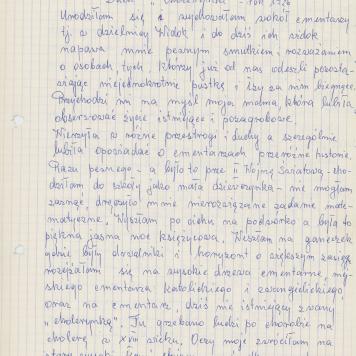 Urodziłam się i wychowałam wokół cmentarzy
tj. w dzielnicy Widok i do dziś ich widok
napawa mnie pewnym smutkiem, rozważaniem
o osobach tych, którzy już od nas odeszli pozosta-
wiając niejednokrotnie pustkę i łzy za nim biegnące.
Przychodzi mi na myśl moja mama, która lubiła
obserwować życie istniejące i pozagrobowe.
Wierzyła w różne przestrogi i duchy a szczególnie
lubiła opowiadać o cmentarzach przeróżne historie.
Razu pewnego - a było to prze II Wojną Światową - cho-
dziłam do szkoły jako mała dziewczynka - nie mogłam
zasnąć, dręczyło mnie nierozwiązane zadanie mate-
matyczne. Wyszłam po cichu na podwórko a była to
piękna jasna noc księżycowa. Weszłam na ganeczek
gdzie były drewalniki i horyzont o większym zasięgu
rozejrzałam się na wysokie drzewa cmentarne, miej-
skiego cmentarza katolickiego i ewangelickiego
oraz na cmentarz, dziś nie istniejący zwany
"cholerynką". Tu grzebano ludzi po chorobie na
cholerę w XVIII wieku. Oczy moje zwróciłam na